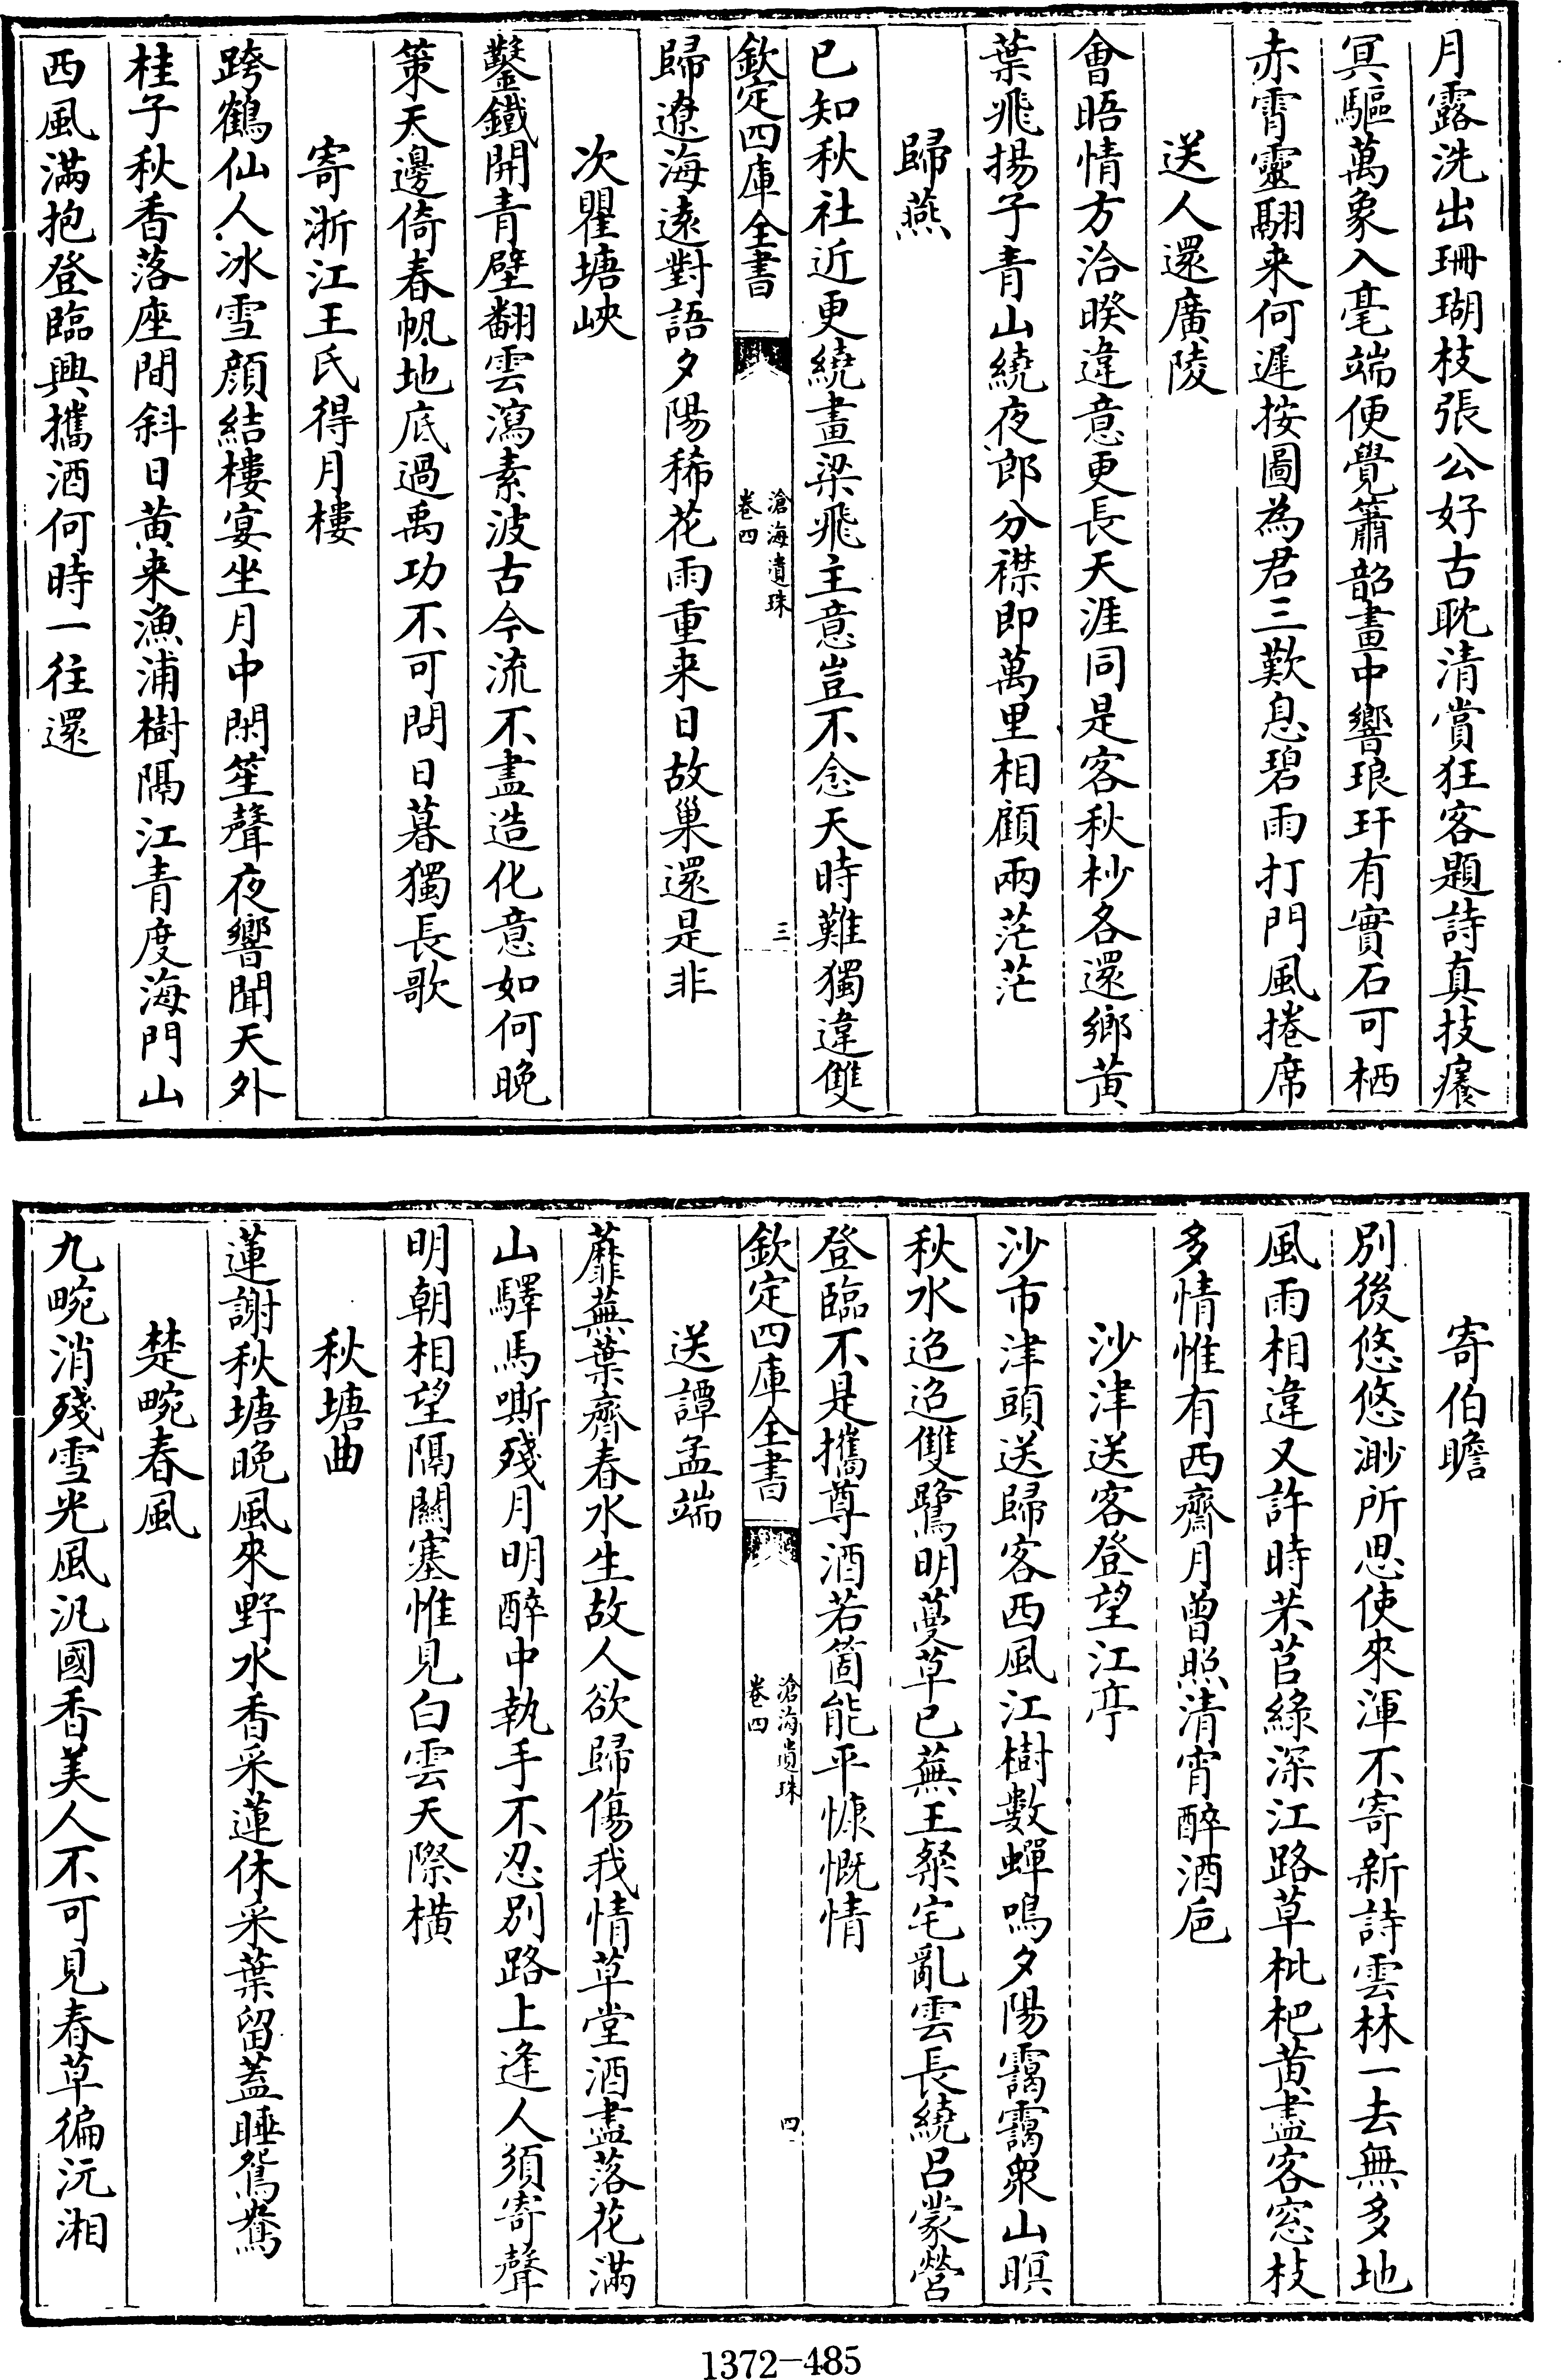 月露洗出珊瑚枝張公好古耽清賞狂客題詩真技癢
冥驅萬象入毫端便覺簫韶畫中響琅玕有實石可栖
赤霄靈翮来何遲按圖為君三歎息碧雨打門風捲席
送人還廣陵
會晤情方洽暌違意更長天涯同是客秋杪各還鄉黄
葉飛揚子青山繞夜郎分襟即萬里相顧兩茫茫
歸燕
已知秋社近更繞畫梁飛主意豈不念天時難獨違雙
欽定四庫全書
滄海遺珠
卷四
三
歸遼海遠對語夕陽稀花雨重来日故巢還是非
次瞿塘峽
鑿鐵開青壁翻雲瀉素波古今流不盡造化意如何晚
策天邊倚春帆地底過禹功不可問日暮獨長歌
寄浙江王氏得月樓
跨鶴仙人冰雪顔結樓宴坐月中閑笙聲夜響聞天外
桂子秋香落座間斜日黄来漁浦樹隔江青度海門山
西風滿抱登臨興攜酒何時一往還
寄伯瞻
別後悠悠渺所思使來渾不寄新詩雲林一去無多地
風雨相違又許時芣苢綠深江路草枇杷黄盡客窓枝
多情惟有西齋月曾照清宵醉酒巵
沙津送客登望江亭
沙市津頭送歸客西風江樹數蟬鳴夕陽靄靄衆山暝
秋水迢迢雙鷺明蔓草已蕪王粲宅亂雲長繞呂蒙營
登臨不是攜尊酒若箇能平慷慨情
欽定四庫全書
滄海遺珠
卷四
四
送譚孟端
蘼蕪葉齊春水生故人欲歸傷我情草堂酒盡落花滿
山驛馬嘶殘月明醉中執手不忍別路上逢人須寄聲
明朝相望隔關塞惟見白雲天際横
秋塘曲
蓮謝秋塘晚風來野水香采蓮休采葉留蓋睡鴛鴦
楚畹春風
九畹消殘雪光風汎國香美人不可見春草徧沅湘
1372-485